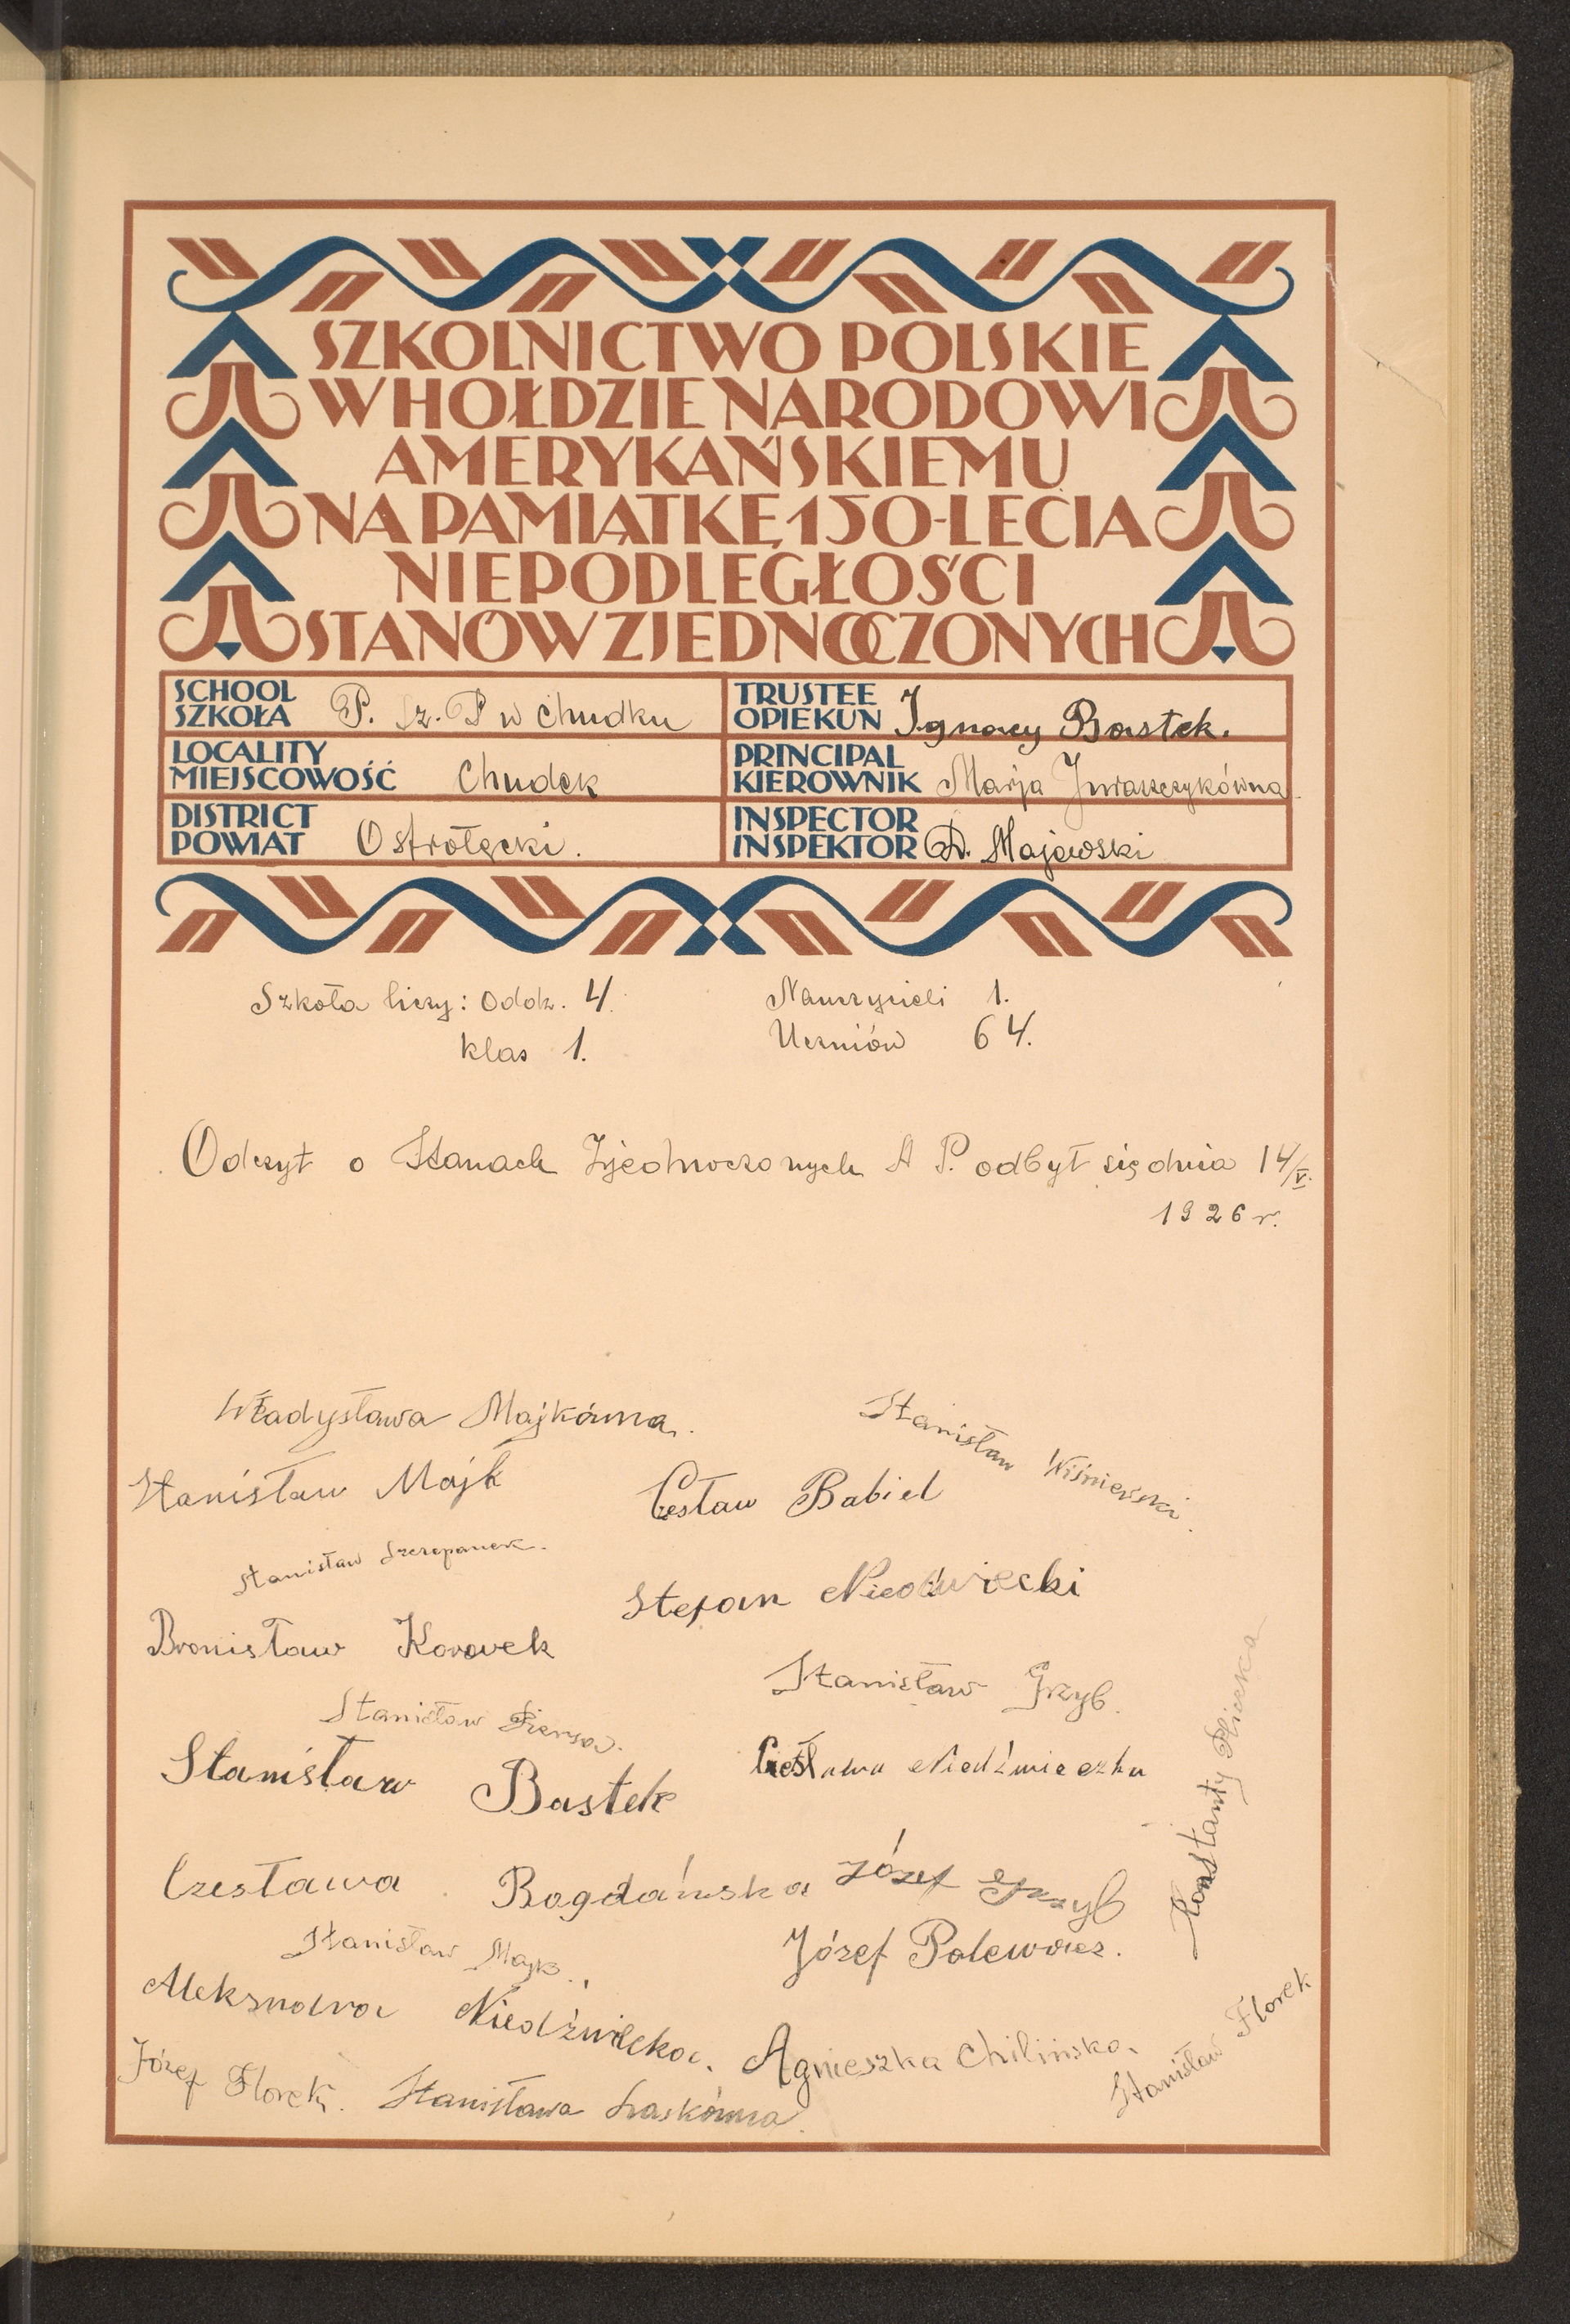 SZKOLNICTWO POLSKIE
W HOŁDZIE NARODOWI
AMERYKAŃSKIEMU
NA PAMIĄTKĘ 150-LECIA
NIEPODLEGŁOŚCI
STANÓW ZJEDNOCZONYCH
SCHOOL
SZKOŁA P. Sz. P w Chudku
TRUSTEE
OPIEKUN Ignacy Bastek.
LOCALITY
MIEJSCOWOŚĆ Chudek
PRINCIPAL
KIEROWNIK Marja
DISTRICT
POWIAT Ostrołęcki.
INSPECTOR
INSPEKTOR D. Majewski
Szkoła liczy: oddz. 4.
klas 1.
Nauczycieli 1.
Uczniów 64.
Odczyt o Stanach Zjednoczonych A P. odbył się dnia 14/V.
1926 r.
Władysława Majkówna.
Stanisław Wiśniewski.
Stanisław Majk
Czesław Babiel
Stanisław Szczepanek.
Stefan Niedźwiecki
Bronisław Korovek
Stanisław Grzyb.
Stanisław
Stanisław Bastek
Niedźwieczka
Konstanty
Czesława Bogdańska
Józef Grzyb
Stanisław Majk.
Józef Polewacz.
Aleksandra Niedźwiecka.
Agnieszka Chilińska.
Stanisław Florek
Józef Florek.
Stanisława Laskówna.